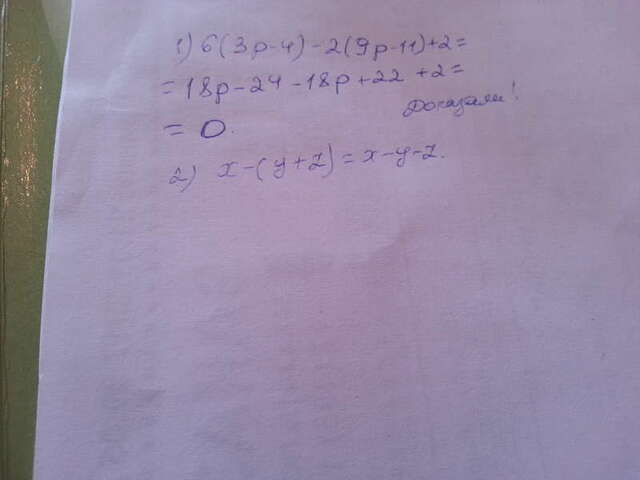 1) 6(3p-4)-2(9p-11)+2=
=18p-24-18p+22+2=
Доказали!
=0.
2) x-(y+z)=x-y-z.